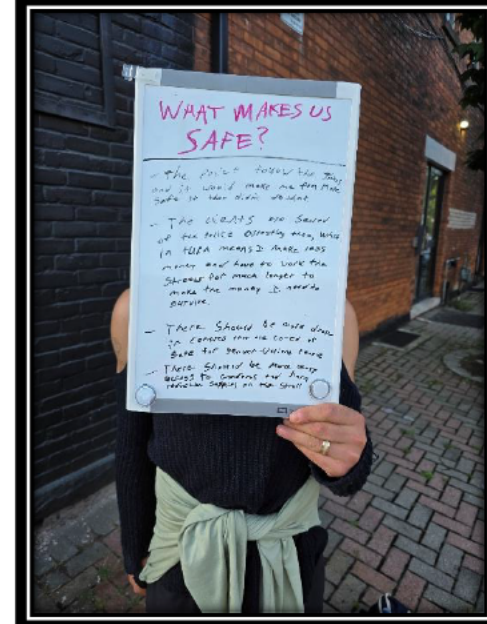 WHAT MAKES US
SAFE?
- The police follow the
and it would make me feel more
safe if they didn't do that
- The clients are scared
of the police arresting them, which
in turn means I make less
money and have to work the
street for much longer to
make the money I need to
survive.
- There should be more drop
in centres
safe for people
- There should be more easy
access to condoms and harm
reduction supplies on the stroll